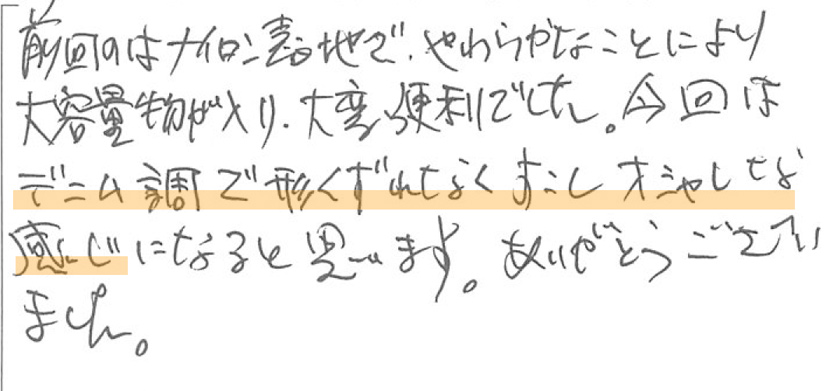 前回のはナイロン素地で、やわらかなことにより
大容量物が入り、大変便利でした。今回は
デニム調で形くずれなくすこしオシャレな
感じになると思います。ありがとうござい
ました。